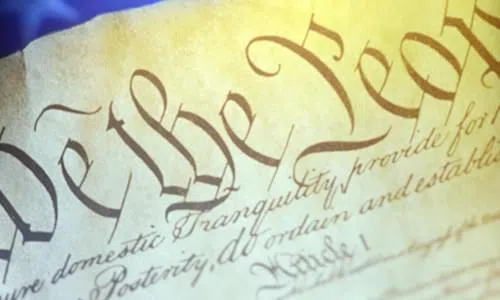 We the Peop
ure domestic Tranquility, provide for
Posterity, do ordain and establi
Article 1